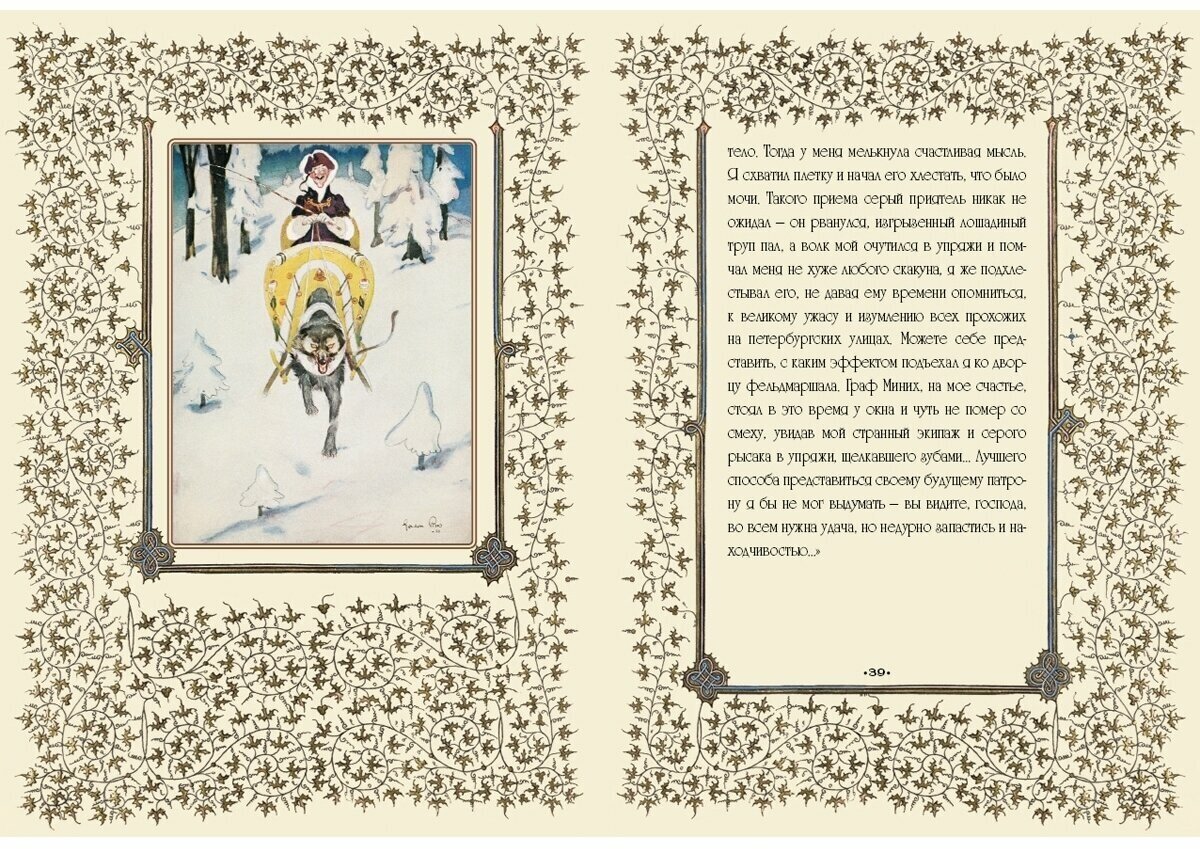 тело. Тогда у меня мелькнула счастливая мысль.
Я схватил плетку и начал его хлестать, что было
мочи. Такого приема серый приятель никак не
ожидал — он рванулся, изгрызенный лошадиный
труп пал, а волк мой очутился в упряжи и пом-
чал меня не хуже любого скакуна, я же подхле-
стывал его, не давая ему времени опомниться,
к великому ужасу и изумлению всех прохожих
на петербургских улицах. Можете себе пред-
ставить, с каким эффектом подъехал я ко двор-
цу фельдмаршала. Граф Миних, на мое счастье,
стоял в это время у окна и чуть не помер со
смеху, увидав мой странный экипаж и серого
рысака в упряжи, щелкавшего зубами... Лучшего
способа представиться своему будущему патро-
ну я бы не мог выдумать — вы видите, господа,
во всем нужна удача, но недурно запастись и на-
ходчивостью...»
•39•